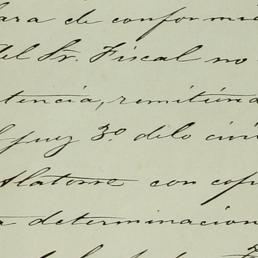 ara de conformi
del Sr. Fiscal no
tencia, remitiend
l juez 3.º delo civi
Alatorre con cop
a determinacion